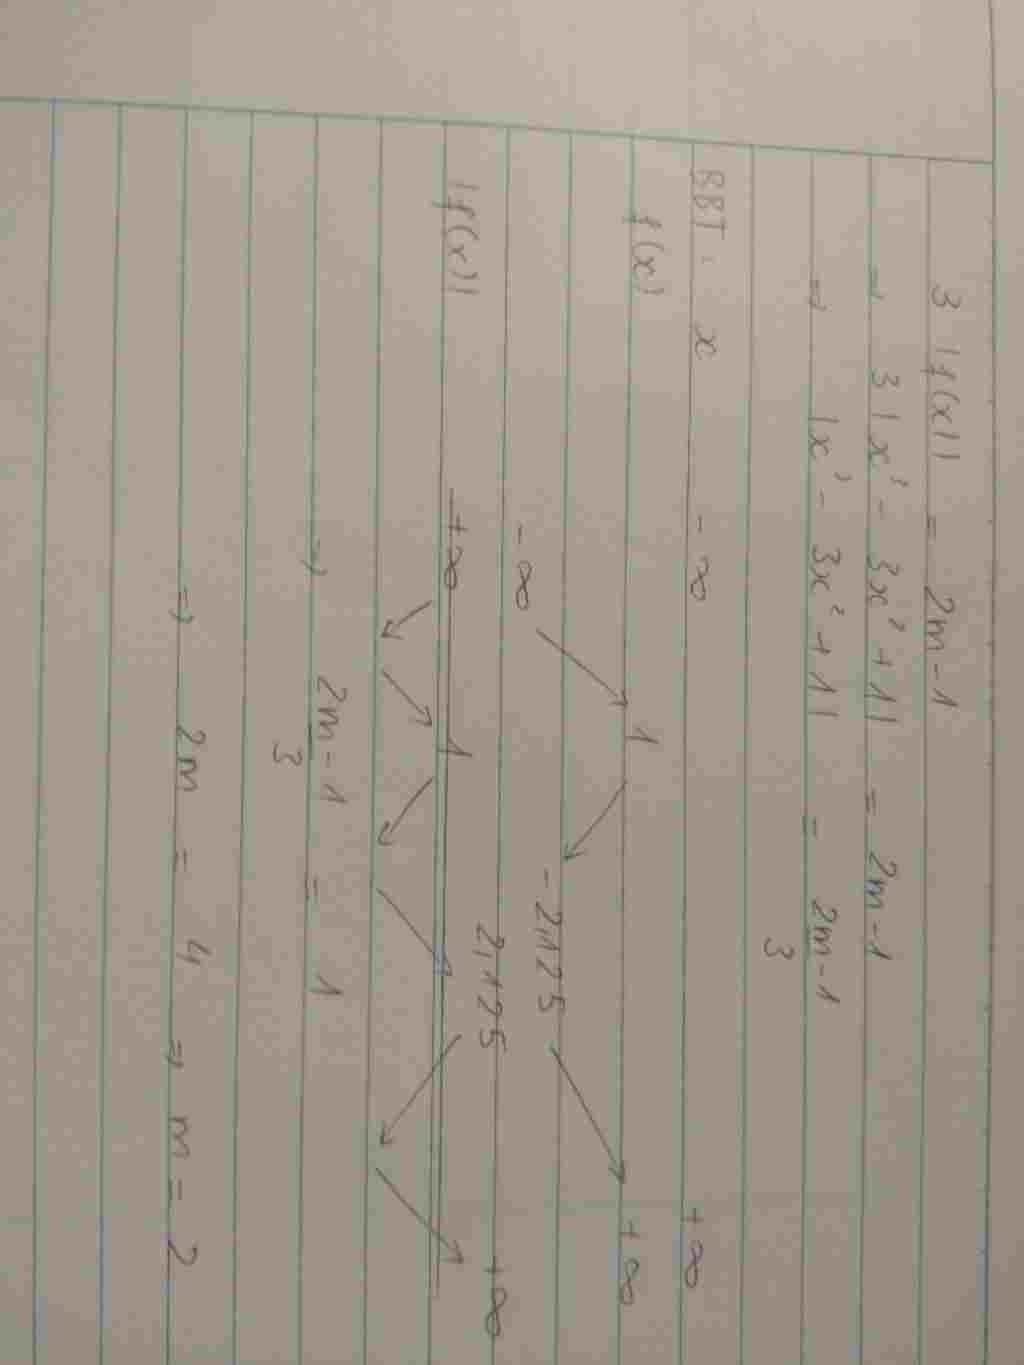 3 |f(x)| = 2m-1
⇒ 3|x³ - 3x² + 1| = 2m-1
⇒ |x³ - 3x² + 1| = (2m-1)/3
BBT: x -∞ +∞
f(x) -∞ ↗ 1 ↘ -2,125 ↗ +∞
|f(x)| +∞ ↘ ↗ 1 ↘ ↗ 2,125 ↘ ↗ +∞
⇒ (2m-1)/3 = 1
⇒ 2m = 4 ⇒ m = 2